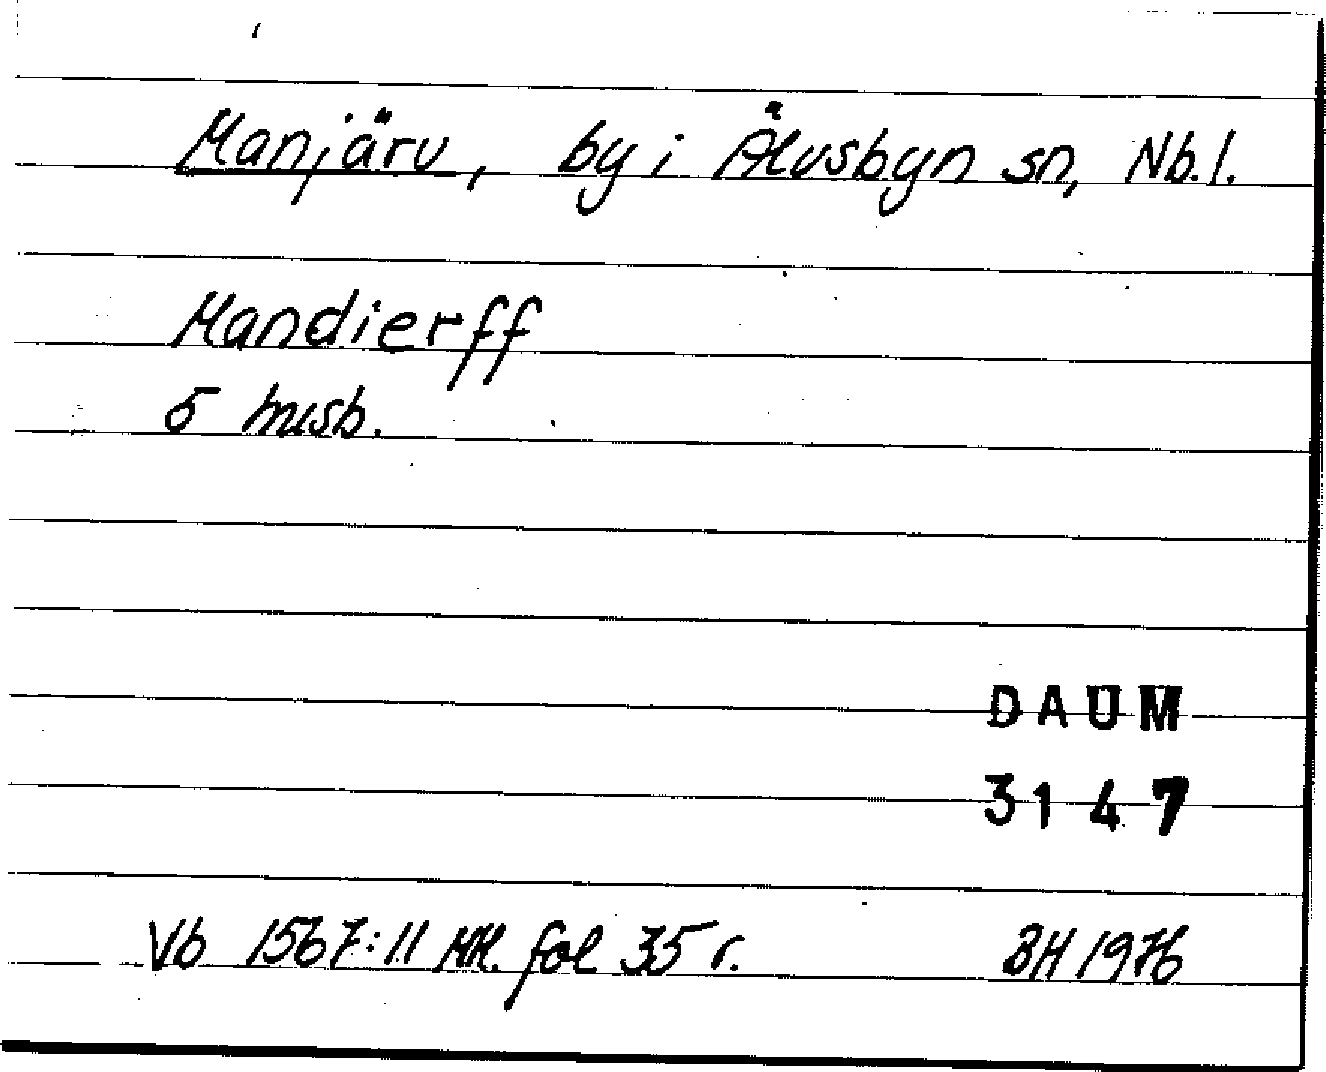 Manjärv, by i Älvsbyn sn, Nb. l.
Mandierff
5 husb.
DAUM
3147
Vb 1567:11 KH. fol 35 r. BH 1976